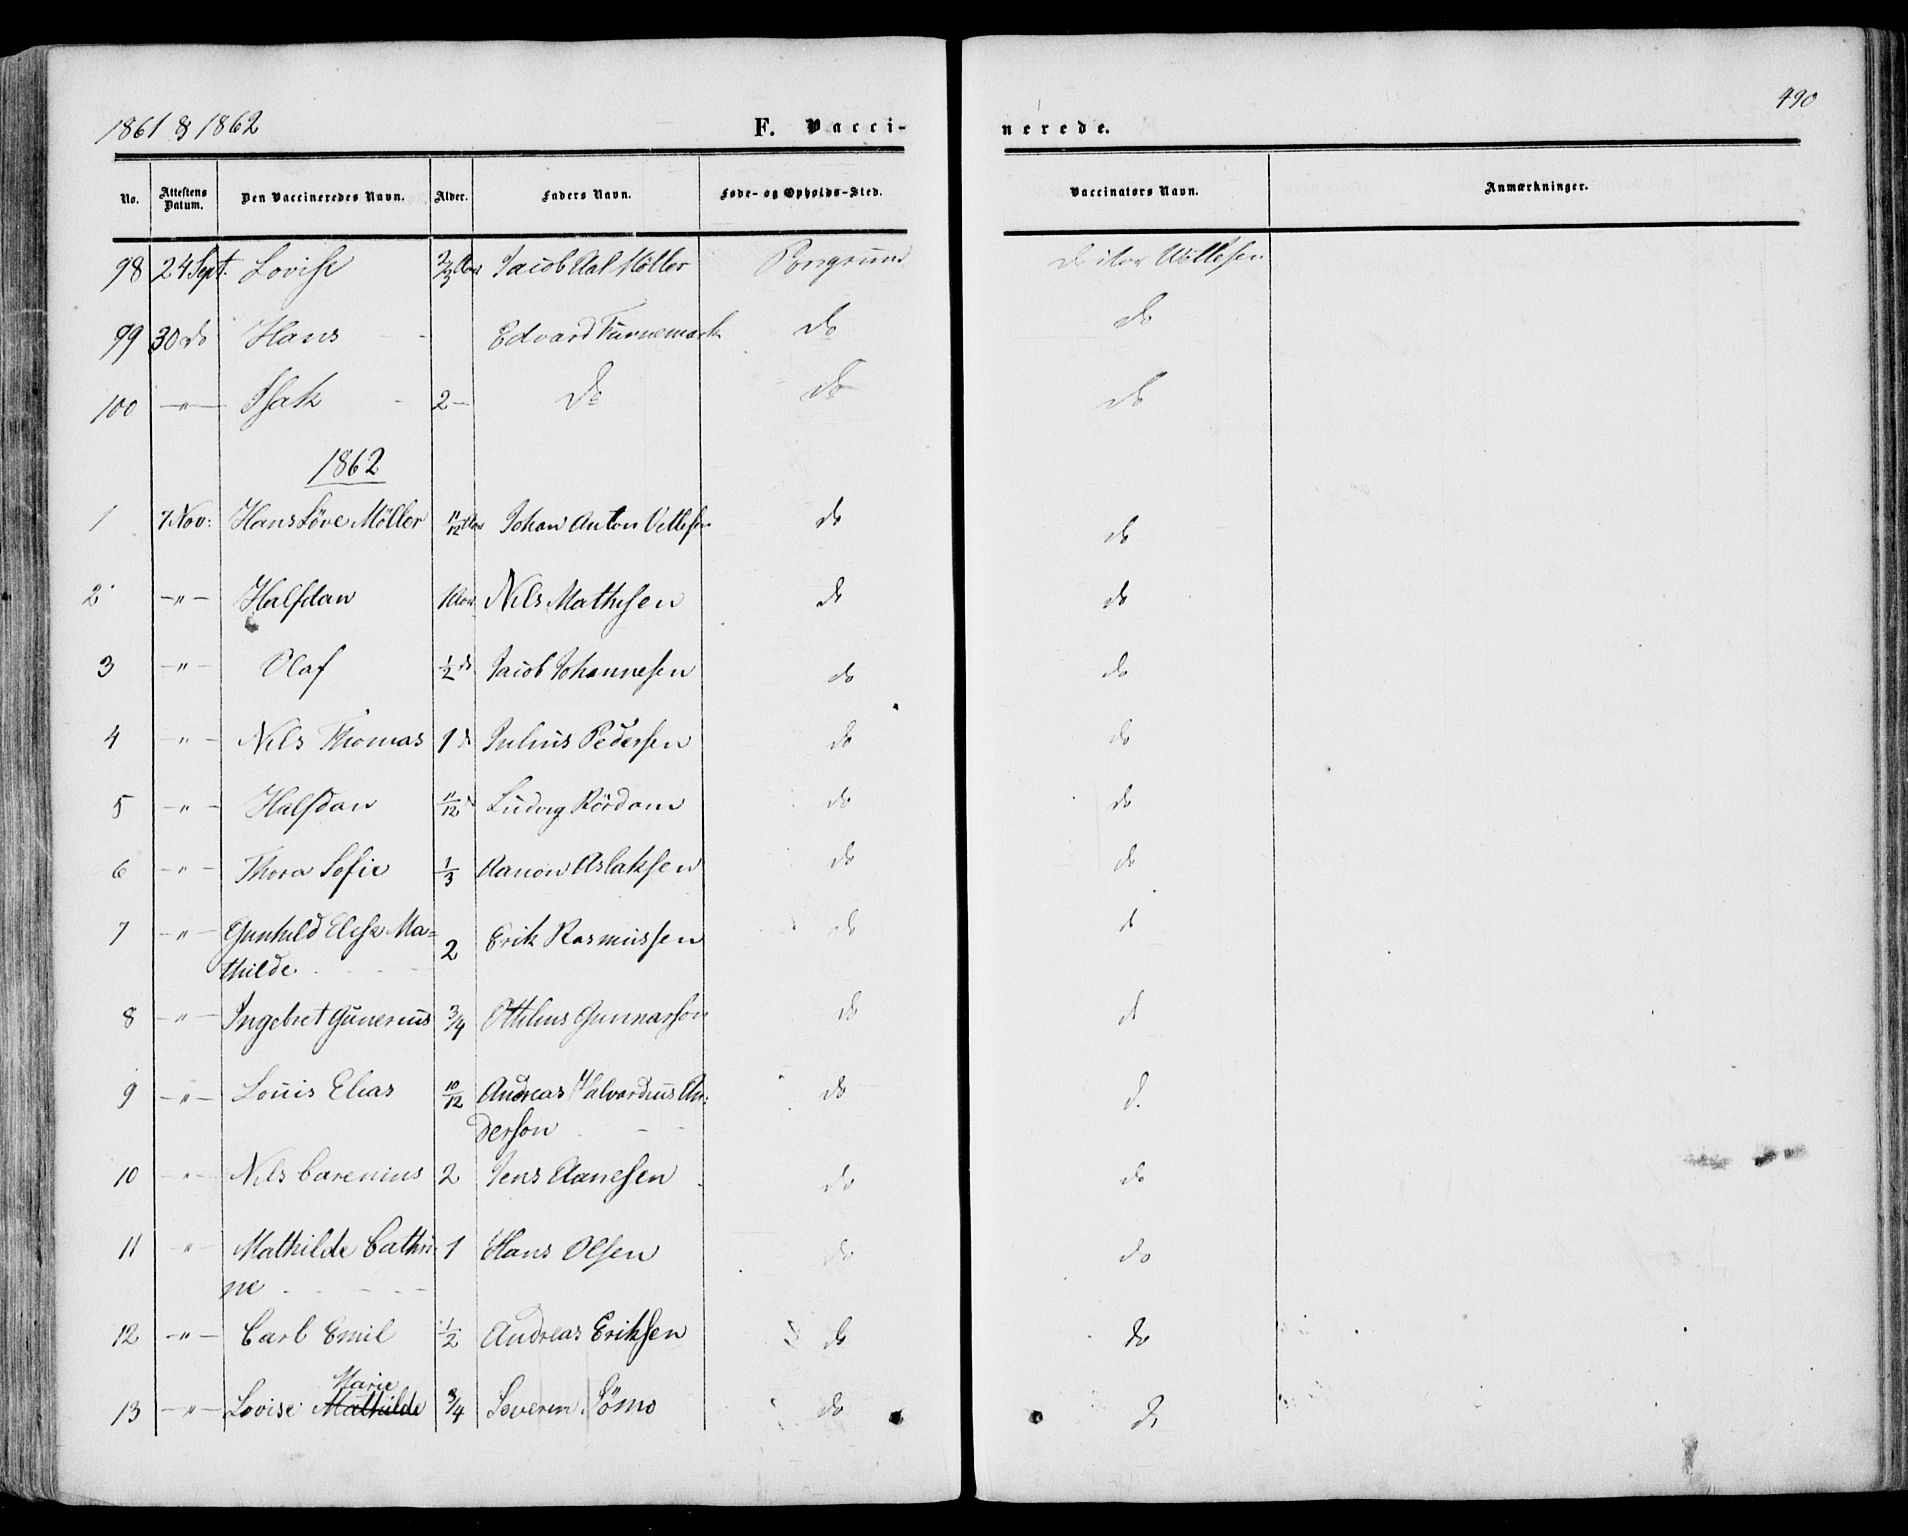 1861 & 1862 F. Vacci- nerede. 490
No. Attestens Datum. Den Vaccineredes Navn. Alder. Faders Navn. Føde- og Opholds-Sted. Vaccinators Navn. Anmærkninger.
98 24 Sept. Lovise 2/3 Aar Jacob Aal Möller Porsgrund Doctor
99 30 do Hans - Edvard do do
100 —"— Isak - 2— do do do
1862
1 7 Nov: Hans Löve Möller 11/12 Aar Johan Anton Vettesen do do
2 —"— Halfdan 1 Aar Nils Mathisen do do
3 —"— Olaf 1/2 do Jacob Johannesen do do
4 —"— Nils Thomas 1 d Julius Pedersen do do
5 —"— Halfdan 11/12 d Ludvig Rördam do do
6 —"— Thora Sofie 1/3 Aanon Aslaksen do do
7 —"— Gunhild Elise Ma= 2 Erik Rasmussen do d
thilde
8 —"— Ingebret Gunerius 3/4 Othilius Gunnarson do d
9 —"— Louis Elias 10/12 Andreas Halvardius An: do d.
derson
10 —"— Nils Carenius 2 Jens Aanesen do do
11 " Mathilde Cathri 1 Hans Olsen do do
ne
12 —"— Carl Emil 1/2 Andreas Eriksen do do
Marie
13 —"— Lovise Mathilde 3/4 Severin Sömo do d